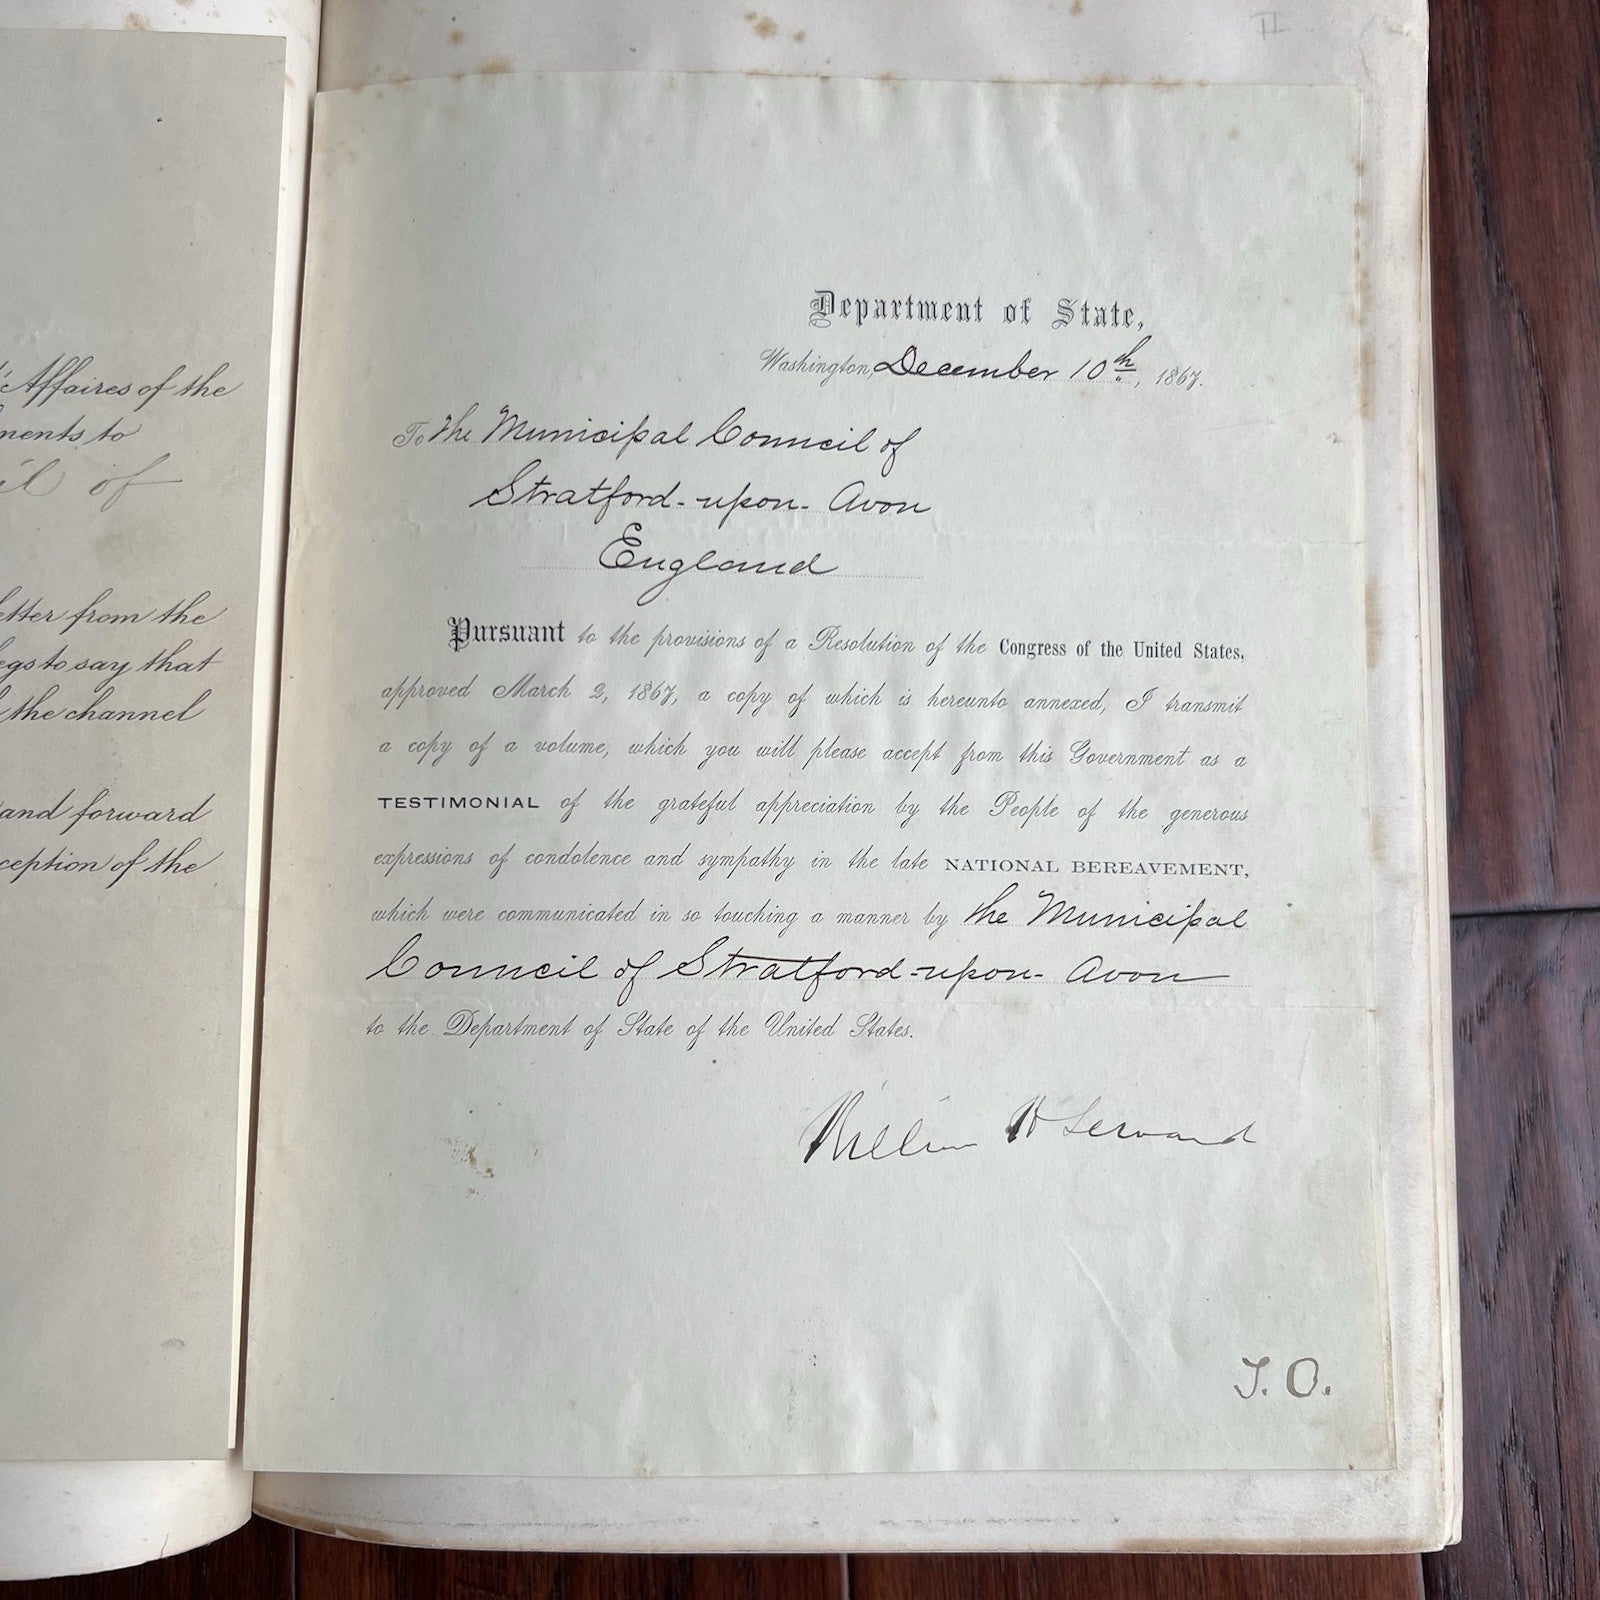 Affaires of the
ments to
of
letter from the
begs to say that
the channel
and forward
ception of the
II
Department of State,
Washington, December 10th, 1867.
To the Municipal Council of
Stratford-upon-Avon
England
Pursuant to the provisions of a Resolution of the Congress of the United States,
approved March 2, 1867, a copy of which is hereunto annexed, I transmit
a copy of a volume, which you will please accept from this Government as a
TESTIMONIAL of the grateful appreciation by the People of the generous
expressions of condolence and sympathy in the late NATIONAL BEREAVEMENT,
which were communicated in so touching a manner by the Municipal
Council of Stratford-upon-Avon
to the Department of State of the United States.
William H Seward
T. O.